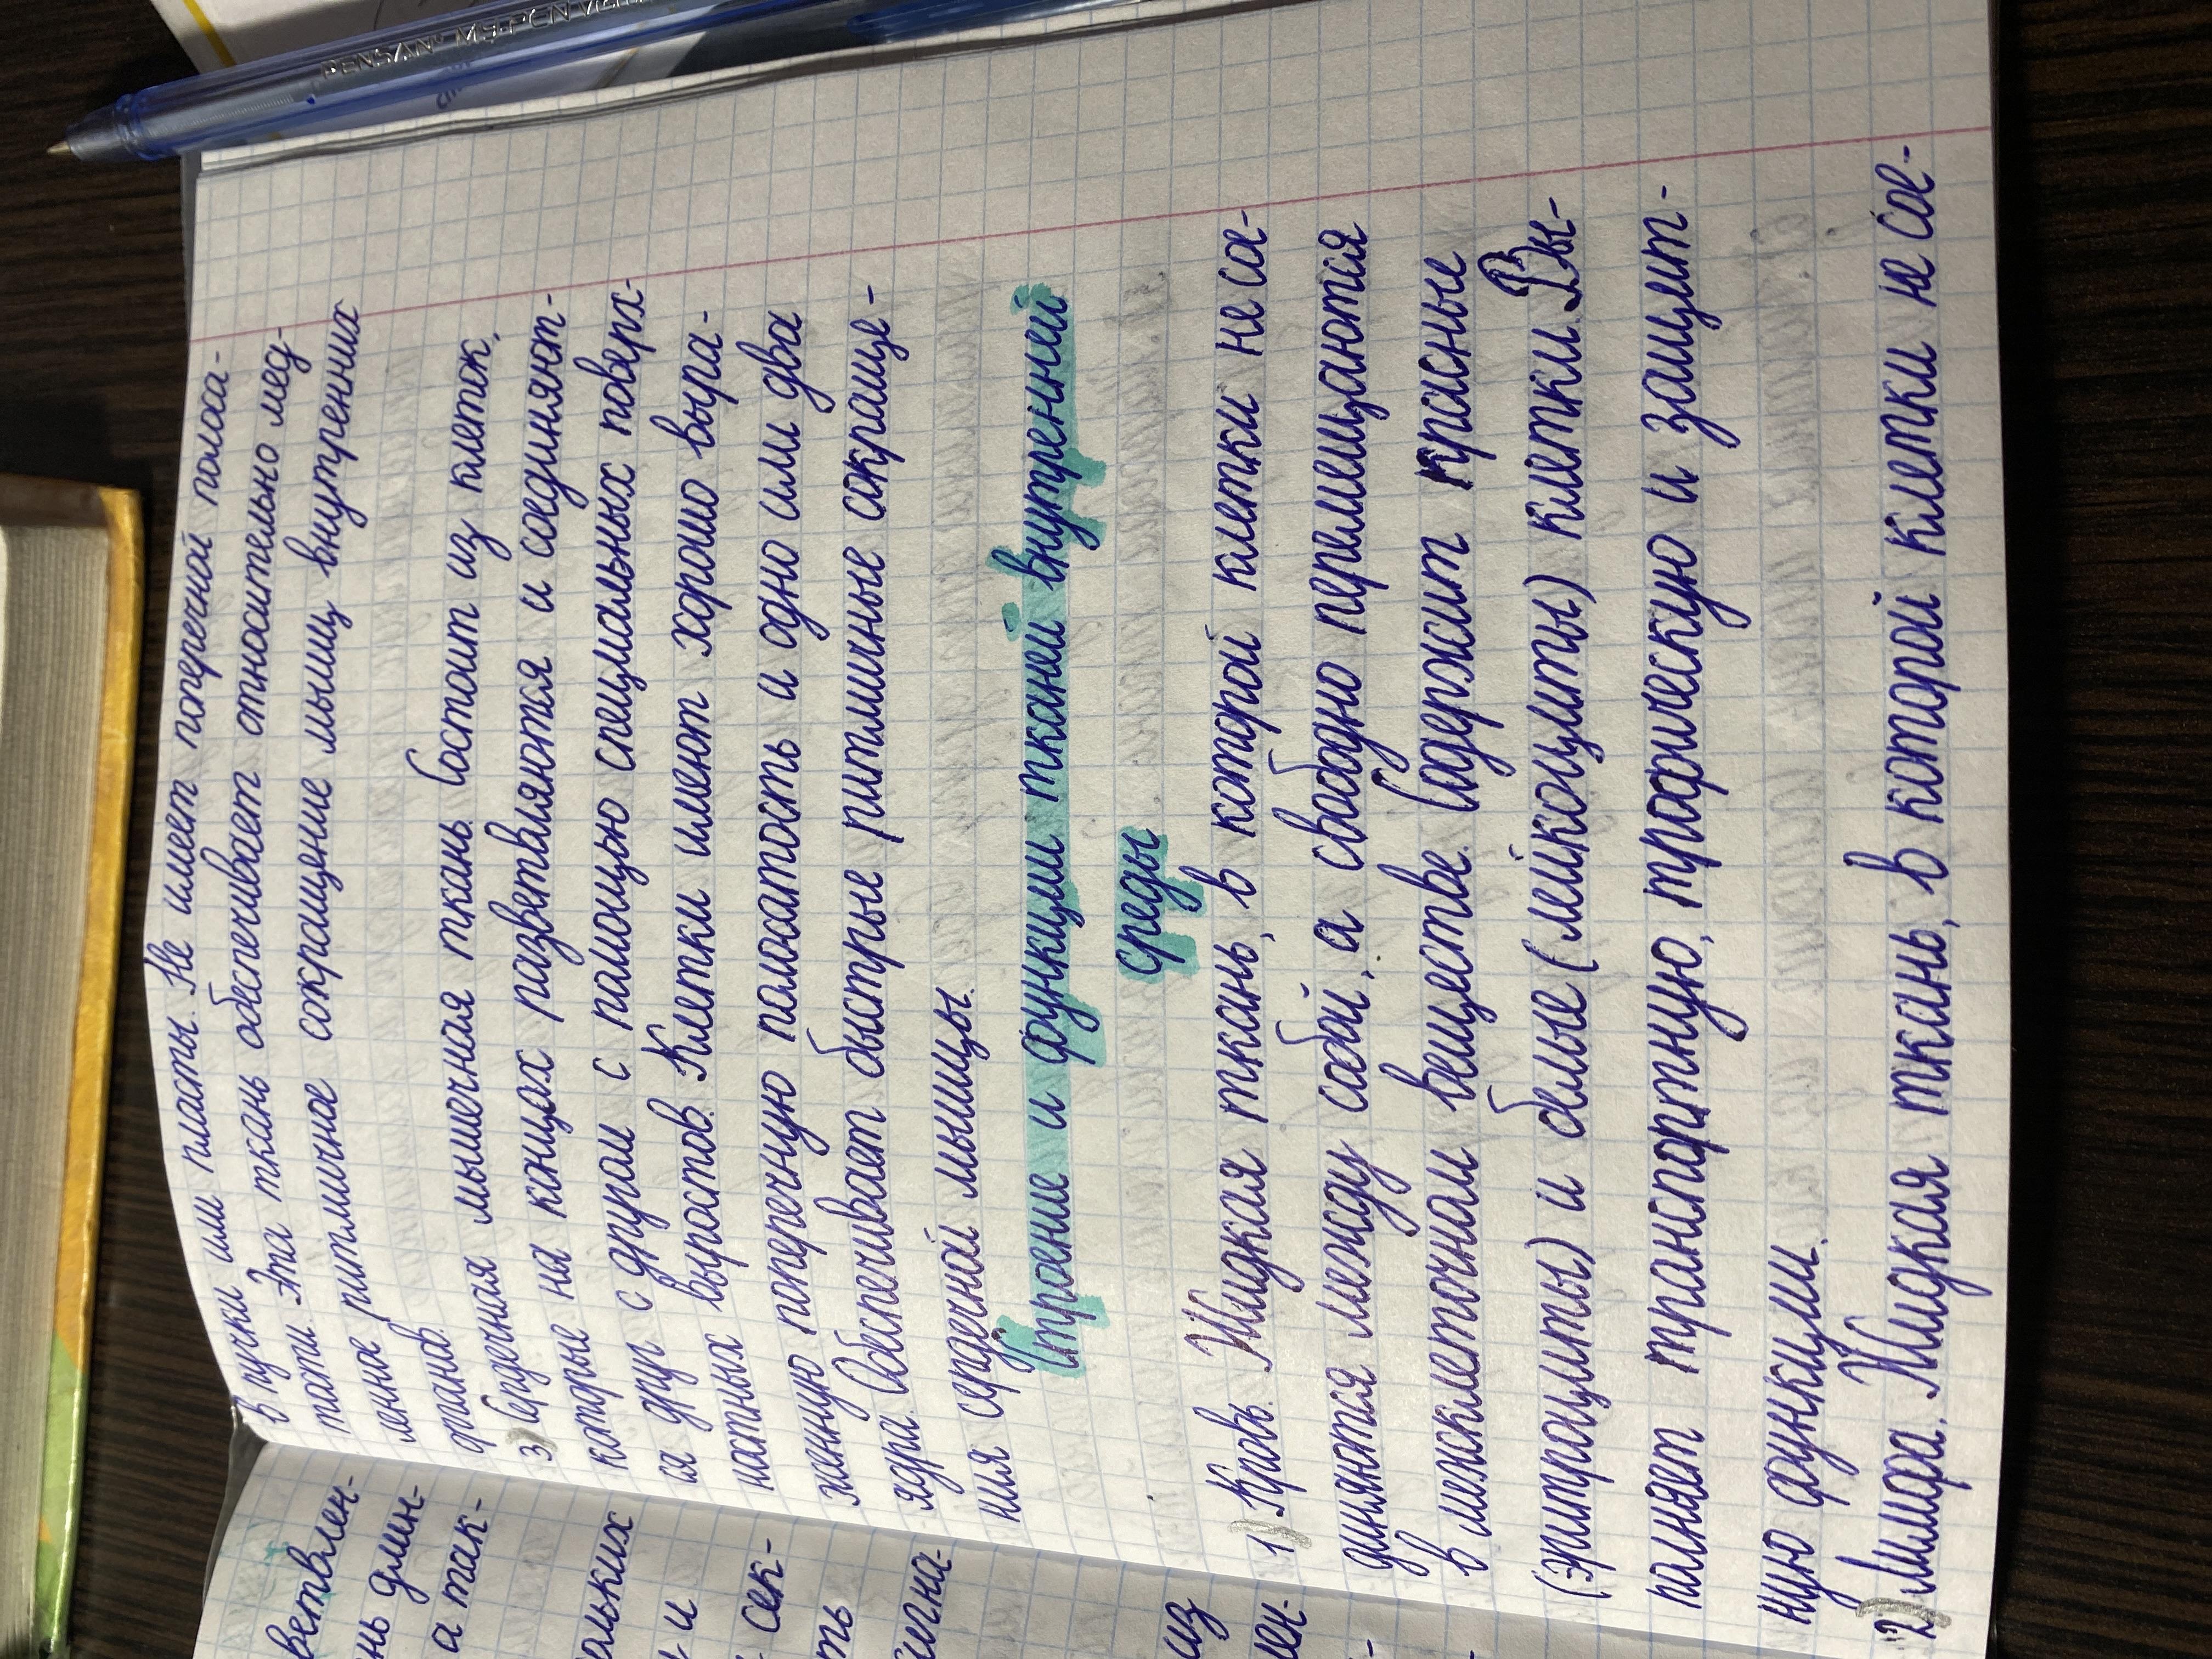 PENSAN MY-PEN
в пучки или пласты. Не имеет поперечной полоса-
тости. Эта ткань обеспечивает относительно мед-
ленное ритмичное сокращение мышц внутренних
органов.
3) Сердечная мышечная ткань. Состоит из клеток,
которые на концах разветвляются и соединяют-
ся друг с другом с помощью специальных поверх-
ностных выростов. Клетки имеют хорошо выра-
женную поперечную полосатость и одно или два
ядра. Обеспечивает быстрые ритмичные сокраще-
ния сердечной мышцы.
Строение и функции тканей внутренней
среды
1) Кровь. Жидкая ткань, в которой клетки не сое-
диняются между собой, а свободно перемещаются
в межклеточном веществе. Содержит красные
(эритроциты) и белые (лейкоциты) клетки. Вы-
полняет транспортную, трофическую и защит-
ную функции.
2) Лимфа. Жидкая ткань, в которой клетки не сое-
ветвлен-
нь длин-
а так-
ольких
у и
сек-
ть
игна-
из
лен-